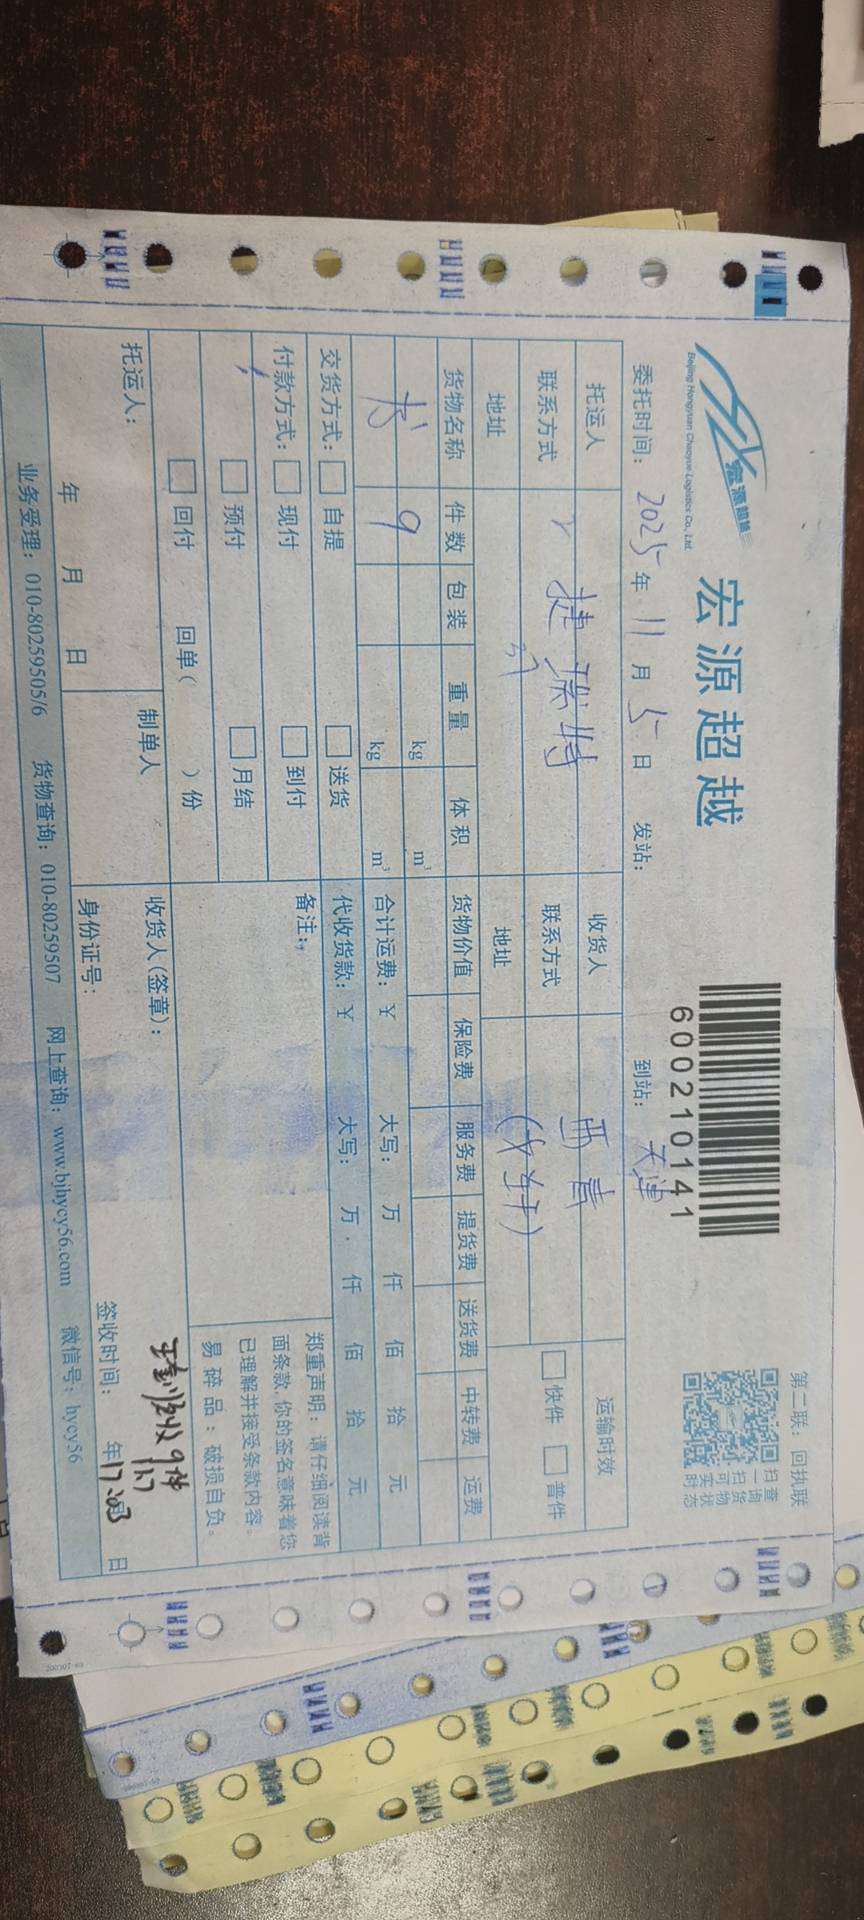 宏源超越
Beijing Hongyuan Chaoyue Logistics Co., Ltd.
宏源超越
600210141
第二联：回执联
扫一扫 可实时
查询货物状态
委托时间： 2025 年 11 月 5 日 发站： 到站： 天津
托运人 捷瑞特 收货人 西青 运输时效
联系方式 联系方式 快件 普件
地址 地址
货物名称 件数 包装 重量 体积 货物价值 保险费 服务费 提货费 送货费 中转费 运费
书 9 kg m³
kg m³ 合计运费：￥ 大写： 万 仟 佰 拾 元
交货方式： 自提 送货 代收货款：￥ 大写： 万 仟 佰 拾 元
付款方式： 现付 到付 备注：
预付 月结
回付 回单（ ）份
郑重声明：请仔细阅读背
面条款，你的签名意味着您
已理解并接受条款内容。
易碎品：破损自负。
托运人： 制单人 收货人(签章)： 9件
11.7
年 月 日 身份证号： 签收时间： 年 月 日
业务受理：010-80259505/6 货物查询：010-80259507 网上查询：www.bjhycy56.com 微信号：hycy56